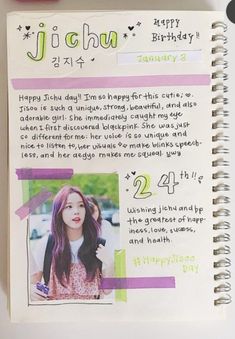 jichu
김지수
Happy
Birthday!!
January 3
Happy Jichu day!! I'm so happy for this cutie;
Jisoo is such a unique, strong, beautiful, and also
adorable girl. She immediately caught my eye
when I first discovered blackpink. She was just
so different for me; her voice is so unique and
nice to listen to, her visuals make blinks speech-
less, and her aegyo makes me squeal. ywy
24th!!
Wishing jichu and bp
the greatest of happ-
iness, love, success,
and health.
#HappyJisoo
Day